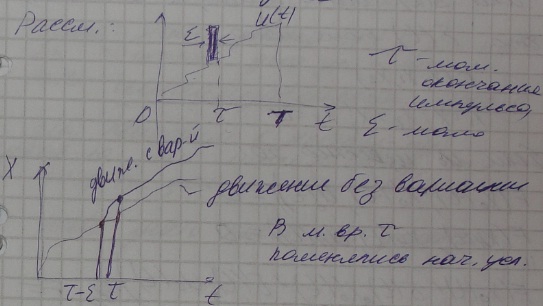 Рассм.:
U(t)
ε
τ - мом.
окончание
импульса,
ε - мало
0
τ
T
t
X
движ. с вар-й
движение без вариации
В м. вр. τ
поменялись нач. усл.
τ-ε τ
t